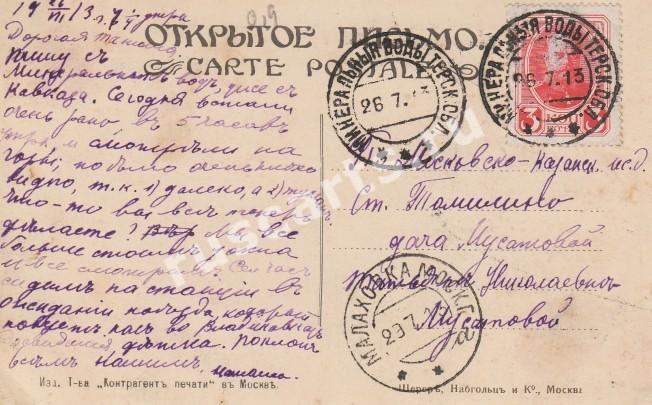 19 26/VII 13 г. 7 ч. утра
ОТКРЫТОЕ ПИСЬМО.
CARTE POSTALE
Дорогая
пишу съ
Минеральныхъ водъ, уже съ
Кавказа. Сегодня встали
очень рано въ 5 часовъ
утра, и смотрѣли на
горы; но было очень плохо
видно, т. к. 1) далеко, а 2) туманъ.
Что-то вы всѣ теперь
дѣлаете? Мы все
больше стоимъ у окна
и все смотримъ. Сейчасъ
сидимъ на станціи въ
ожиданіи поѣзда, который
повезетъ насъ во Владикавказъ
Поклонъ
всѣмъ нашимъ.
МИНЕРАЛЬНЫЯ ВОДЫ ТЕРСК. ОБЛ.
26.7.13
МИНЕРАЛЬНЫЯ ВОДЫ ТЕРСК. ОБЛ.
26.7.13
3
КОП
Московско-Казанск. ж. д.
Ст. Томилино
дача Мусатовой
Николаевнѣ
Мусатовой
МАЛАХОВКА МОСК. Г.
29.7.13
а
Изд. Т-ва „Контрагентъ печати" въ Москвѣ.
Шереръ, Набгольцъ и К°., Москва